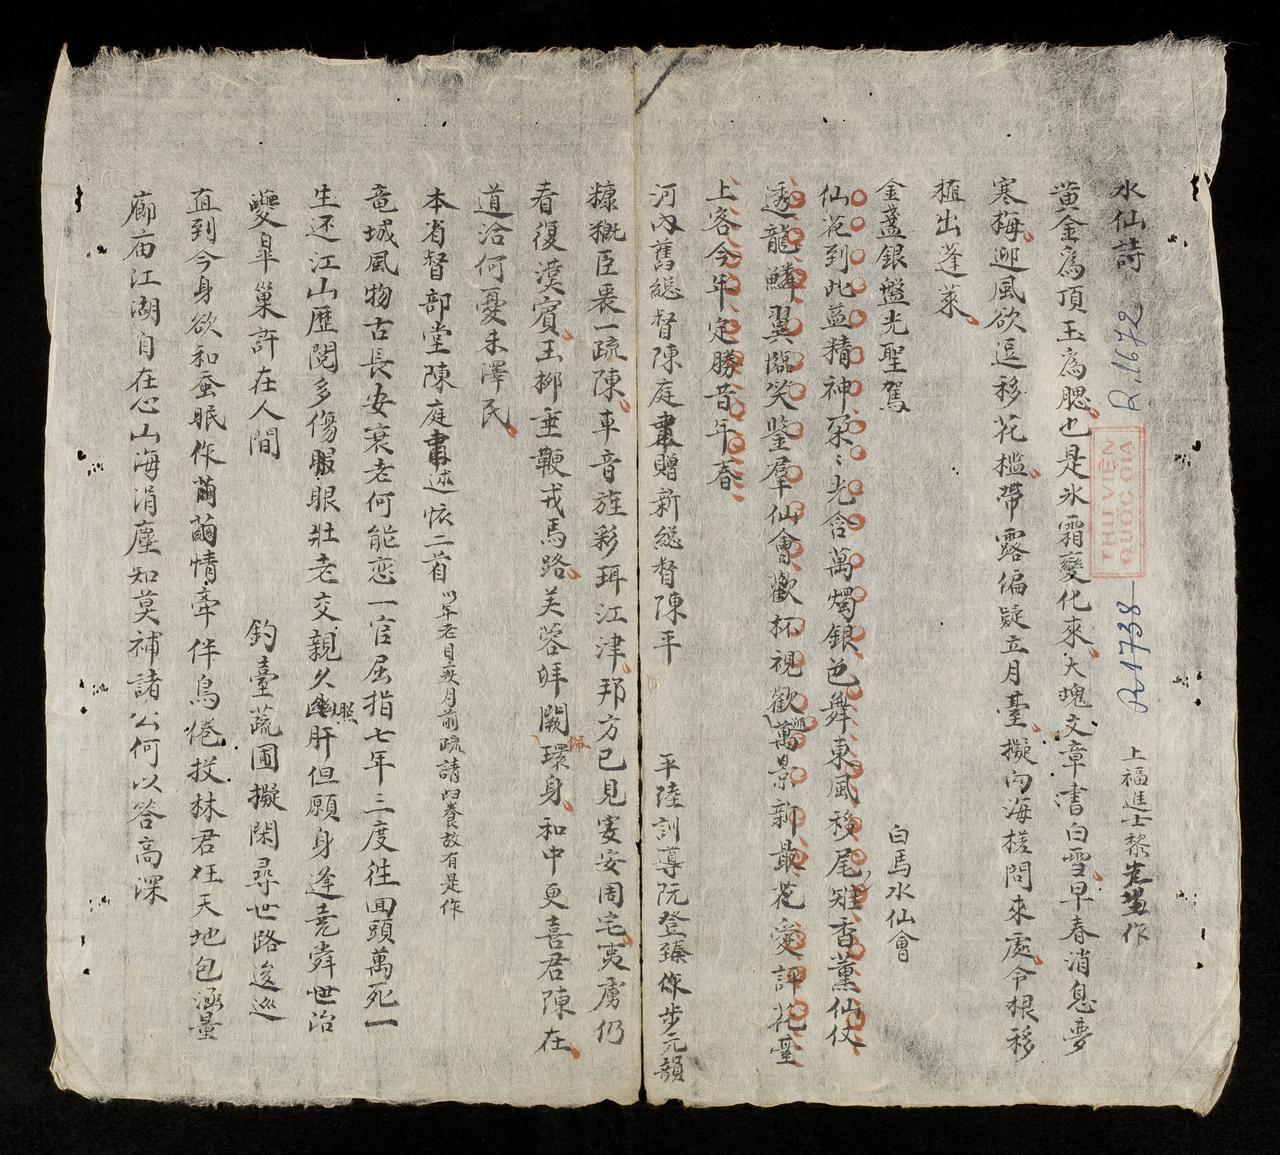 水仙詩 上福進士黎作
黄金為頂玉為腮也是氷霜變化來大塊文章書白雪早春消息夢
寒梅迎風欲逗移花檻帶露偏疑立月臺擬向海槎問來處令根移
植出蓬萊
金盞銀盤光聖駕 白馬水仙會
仙花到此益精神朶〻光含萬燭銀色舞東風移尾雉香薰仙仗
透龍鱗翼臨笑鑒羣仙會歡杯視歡萬景新最花愛評花臺
上客今年定勝昔年春
河內舊総督陳庭肅贈新総督陳平 平陸訓導阮登臻依步元韻
糠粃臣裹一疏陳車音旌彩珥江津邦方已見寔安周宅夷虜仍
看復漢賓玉柳垂鞭戎馬路芙蓉拜闕環身和中更喜君陳在
道洽何憂未澤民
本省督部堂陳庭肅述懷二首 以年老目疾月前疏請歸養故有是作
竜城風物古長安衰老何能恋一官屈指七年三度徃回頭萬死一
生还江山歷閱多傷眼壯老交親久照肝但願身逢堯舜世治
夔皐巢許在人間 釣臺蔬圃擬閑尋世路逡巡
直到今身欲和蚕眠作繭情牽伴鳥倦投林君在天地包涵量
廊庙江湖自在心山海涓塵知莫補諸公何以答高深
THƯ VIỆN
QUỐC GIA
R.1672
R.1738